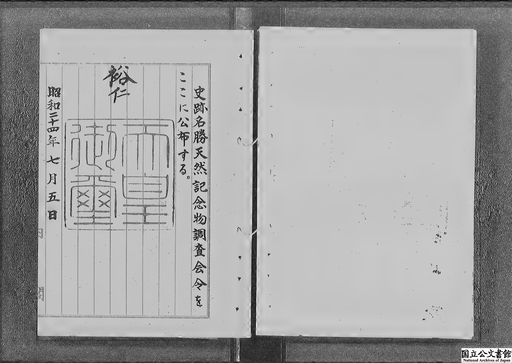 史跡名勝天然記念物調査会令を
ここに公布する。
裕仁
天皇
御璽
昭和二十四年七月五日
国立公文書館
National Archives of Japan